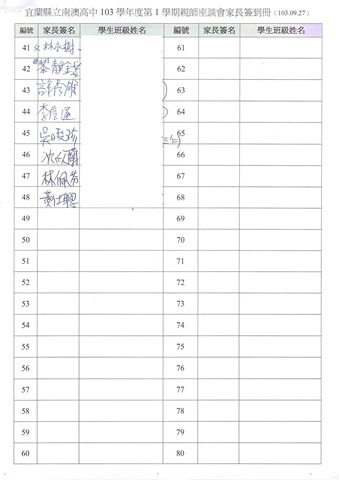 宜蘭縣立南澳高中 103 學年度第 1 學期親師座談會家長簽到冊 (103.09.27)
編號 家長簽名 學生班級姓名 編號 家長簽名 學生班級姓名
41 林水樹 61
42 黎靜 62
43 許秀雄 63
44 李 64
45 吳曉珍 65
46 沈欣蘭 66
47 林佩芬 67
48 黃仕聰 68
49 69
50 70
51 71
52 72
53 73
54 74
55 75
56 76
57 77
58 78
59 79
60 80